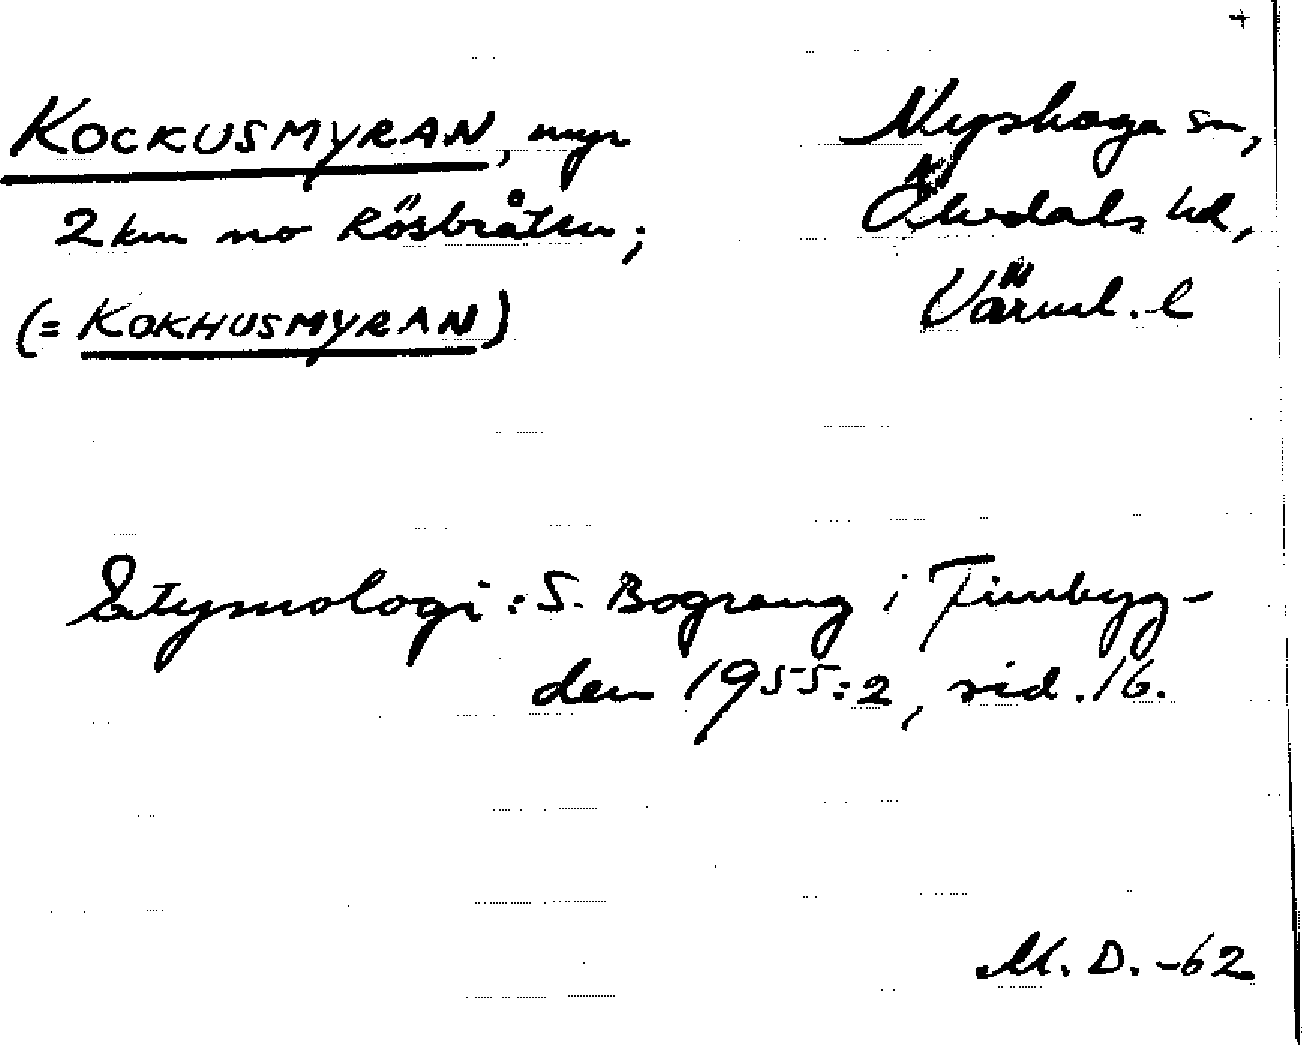 +
KOCKUSMYRAN, myr
2 km no Rösbråten;
(= KOKHUSMYRAN)
Nyskoga sn,
Älvdals hd,
Värml. l
Etymologi: S. Bograng i Finnbyg-
den 1955:2, sid. 16.
M. D. -62